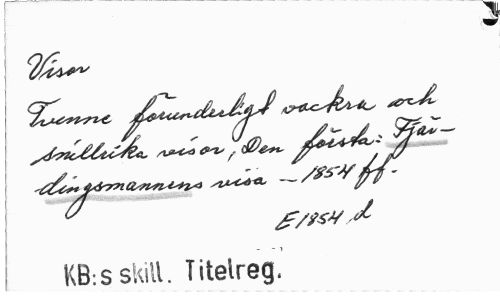 Visor
Tvenne förunderligt vackra och
snillrika visor, Den första: Fjär-
dingsmannens visa – 1854 ff.
E 1854 d
KB:s skill. Titelreg.